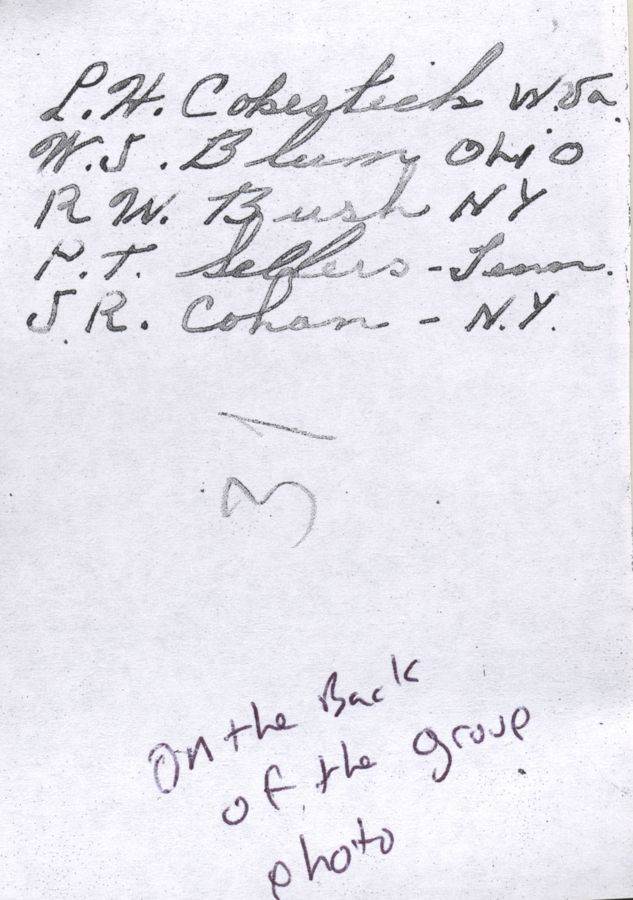 L.H. Cokestech W.Va.
W.J. Blum OHIO
R W. Bush NY
P.T. Sellers - Tenn.
J.R. Cohan - N.Y.
31
On the Back
of the group
photo